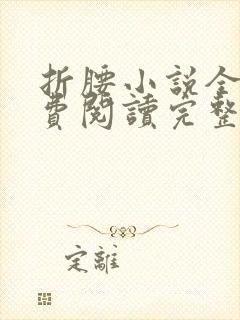 折腰小說全
費閱讀完整
定離